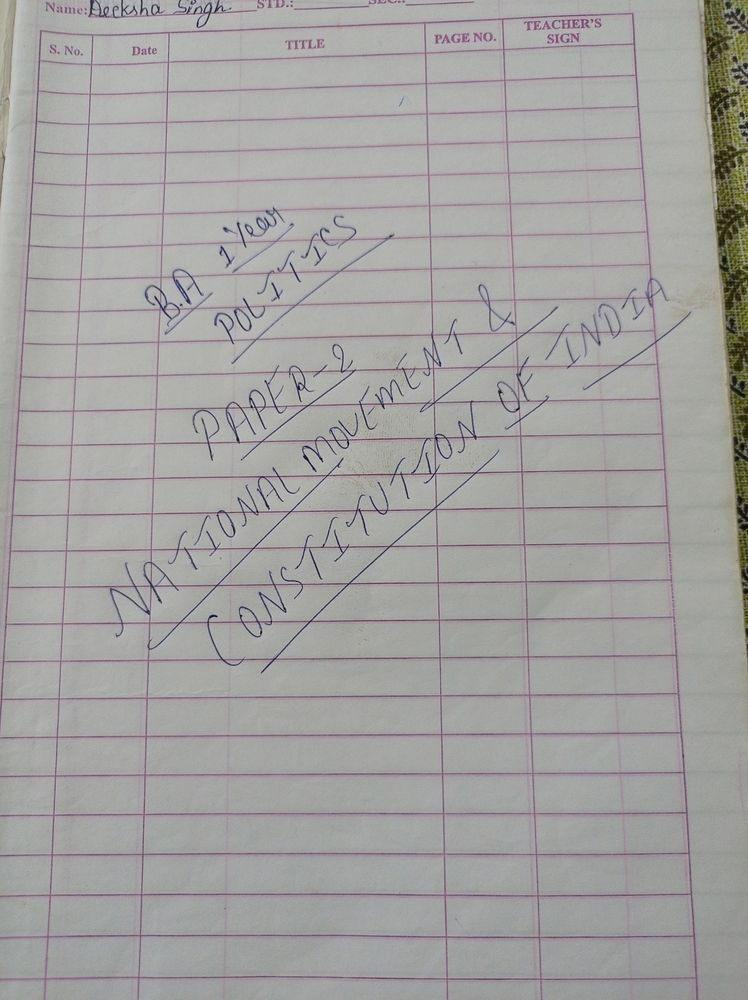 Name: Deeksha Singh STD.: SEC.:
S. No. Date TITLE PAGE NO. TEACHER'S SIGN
B.A 1 Year
POLITICS
PAPER-2
NATIONAL MOVEMENT &
CONSTITUTION OF INDIA